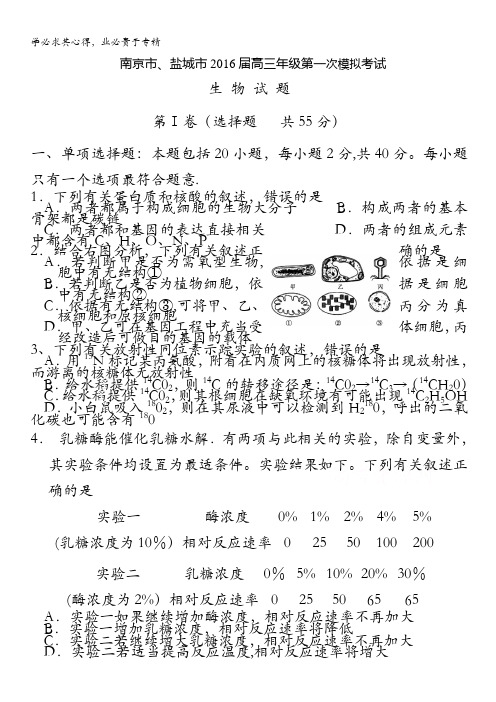 学必求其心得，业必贵于专精
南京市、盐城市2016届高三年级第一次模拟考试
生 物 试 题
第Ⅰ卷（选择题 共55分）
一、单项选择题：本题包括20小题，每小题2分,共40分。每小题
只有一个选项最符合题意.
1．下列有关蛋白质和核酸的叙述，错误的是
A．两者都属于构成细胞的生物大分子 B．构成两者的基本
骨架都是碳链
C．两者都和基因的表达直接相关 D．两者的组成元素
中都含有C、H、O、N、P
2．结合右图分析，下列有关叙述正 确的是
A．若判断甲是否为需氧型生物， 依据是细
胞中有无结构①
B．若判断乙是否为植物细胞，依 据是细胞
中有无结构②
C．依据有无结构③可将甲、乙、 丙分为真
核细胞和原核细胞
D．甲、乙可在基因工程中充当受 体细胞，丙
经改造后可做目的基因的载体
甲 乙 丙
① ② ③
3、下列有关放射性同位素示踪实验的叙述，错误的是
A．用15N标记某丙氨酸，附着在内质网上的核糖体将出现放射性，
而游离的核糖体无放射性
B．给水稻提供14CO2，则14C的转移途径是：14CO2→14C3→（14CH2O）
C．给水稻提供14CO2,则其根细胞在缺氧环境有可能出现14C2H5OH
D．小白鼠吸入18O2，则在其尿液中可以检测到H218O，呼出的二氧
化碳也可能含有18O
4． 乳糖酶能催化乳糖水解．有两项与此相关的实验，除自变量外，
其实验条件均设置为最适条件。实验结果如下。下列有关叙述正
确的是
实验一 酶浓度 0% 1% 2% 4% 5%
(乳糖浓度为10％）相对反应速率 0 25 50 100 200
实验二 乳糖浓度 0％ 5% 10% 20% 30％
(酶浓度为2%）相对反应速率 0 25 50 65 65
A．实验一如果继续增加酶浓度，相对反应速率不再加大
B．实验一增加乳糖浓度，相对反应速率将降低
C．实验二若继续增大乳糖浓度，相对反应速率不再加大
D．实验二若适当提高反应温度,相对反应速率将增大